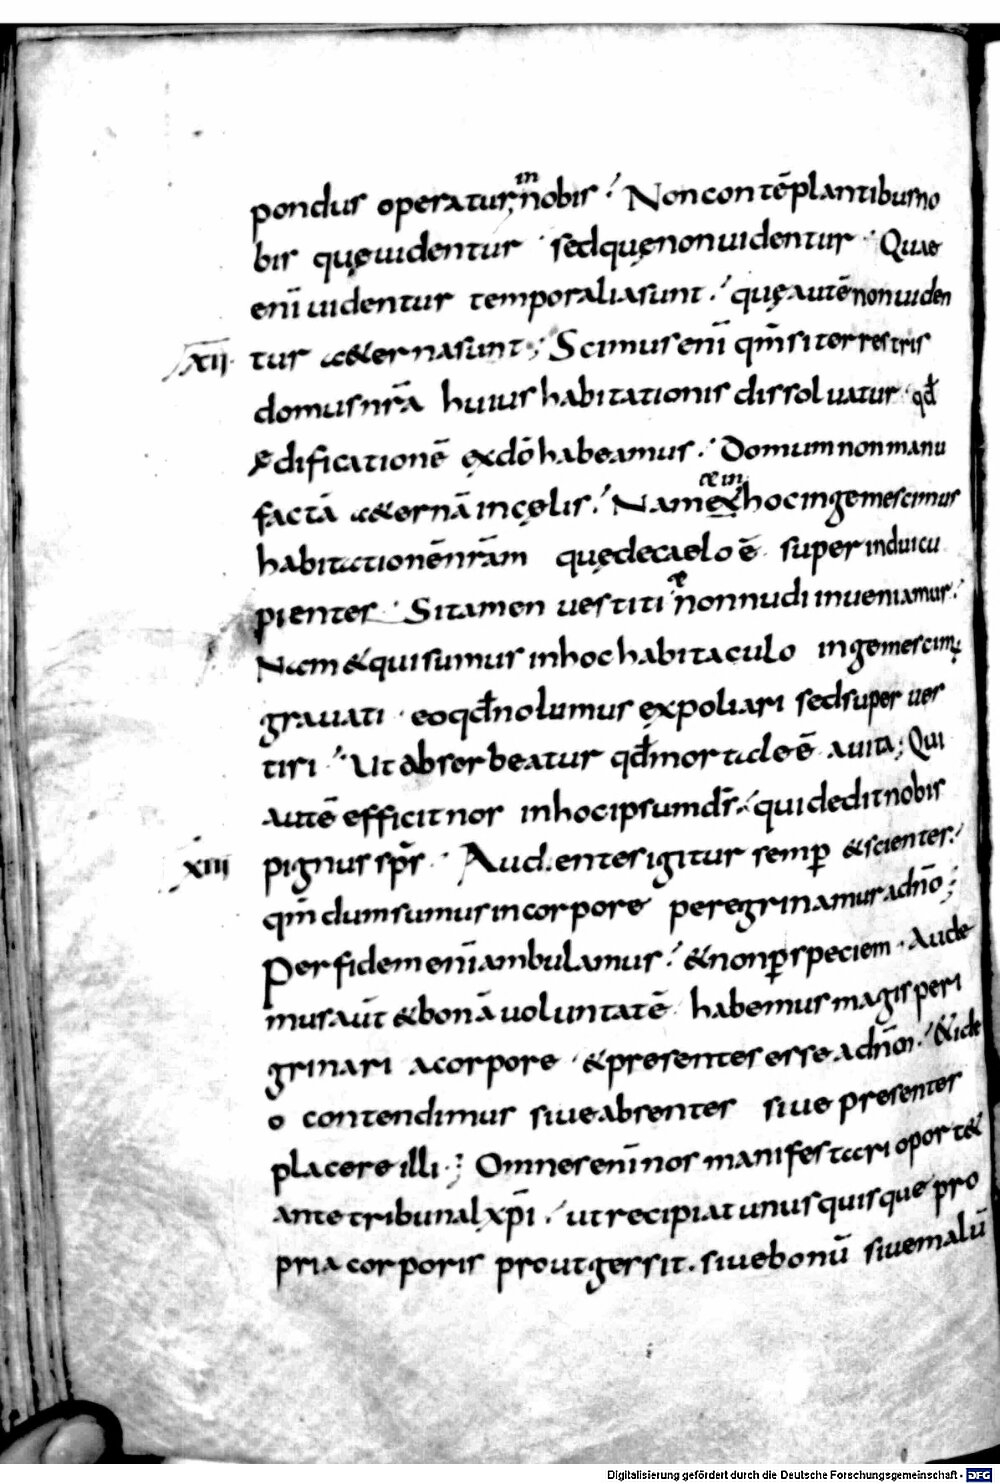 pondus operatur in nobis. Non contēplantibus no
bis quę uidentur. sed quę non uidentur. Quae
enī uidentur temporalia sunt. quę autē non uiden
XII. tur aeterna sunt; Scimus enī qm̄ si terrestris
domus nr̄a huius habitationis dissoluatur. qđ
ędificationē ex dō habeamus. Domum non manu
factā aeternā in cęlis. Nam et in hoc ingemescimus
habitationē nr̄am quę de caelo ē superindui cu
pientes. Si tamen uestiti & non nudi inueniamur.
Nam & qui sumus in hoc habitaculo ingemescim;
grauati. eo qđ nolumus expoliari sed super ues
tiri. Ut absorbeatur qđ mortale ē a uita; Qui
autē efficit nos in hoc ipsum d̄s. qui dedit nobis
XIII pignus sp̄s. Audentes igitur semp & scientes.
qm̄ dum sumus in corpore peregrinamur a dn̄o;
Per fidem enī ambulamus. & non p speciem. Aude
mus aūt & bonā uoluntatē habemus magis peri
grinari a corpore. & presentes esse ad dn̄m. & ide
o contendimus siue absentes siue presentes
placere illi.; Omnes enī nos manifestari oport&
ante tribunal xp̄i. ut recipiat unusquisque pro
pria corporis prout gessit. siue bonū siue malū
Digitalisierung gefördert durch die Deutsche Forschungsgemeinschaft - DFG